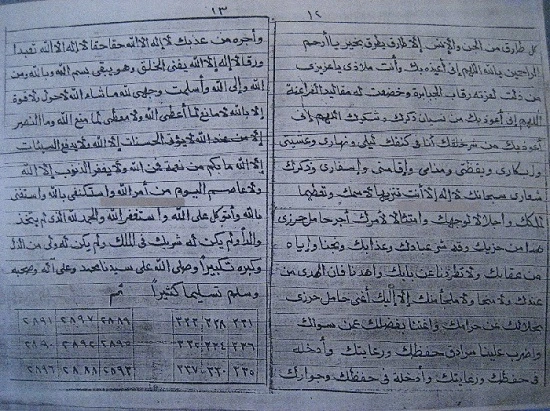 ١٢
كل طارق من الجن والإنس إلا طارق يطرق بخير يا أرحم
الراحمين يا الله اللهم إني أعوذ بك وأنت ملاذي يا عزيزي
من ذلت لعزته رقاب الجبابرة وخضعت له مقاليد الفراعنة
اللهم إني أعوذ بك من نسيان ذكرك وشكرك اللهم إني
أعوذ بك من شر خلقك أنا في كنفك ليلي ونهاري وعسيتي
وإبكاري ويقظتي ومنامي وإقامتي وإسفاري وذكرك
شعاري سبحانك لا إله إلا أنت تنزيها لاسمك وتعظيما
لملكك وإجلالا لوجهك وامتثالا لأمرك أجر حامل حرزي
هذا من خزيك وقه شر عبادك وعذابك ونجنا وإياه
من عقابك ولا تطردنا عن بابك واهدنا فإن الهدى من
عندك ولا منجا ولا ملجأ منك إلا إليك أغني حامل حرزي
بحلالك عن حرامك وأغننا بفضلك عمن سواك
واضرب علينا سرادق حفظك ورعايتك وأدخله
في حفظك ورعايتك وأدخله في حفظك وجوارك
١٣
وأجره من عذابك لا إله إلا الله حقا حقا لا إله إلا الله تعبدا
ورقا لا إله إلا الله يفنى الخلق وهو يبقى بسم الله وبالله ومن
الله وإلى الله وأسلمت وجهي لله ما شاء الله لا حول ولا قوة
إلا بالله لا مانع لما أعطى الله ولا معطي لما منع الله وما النصر
إلا من عند الله لا يؤتي الحسنات إلا الله ولا يدفع السيئات
إلا الله ما بكم من نعمة فمن الله ولا يغفر الذنوب إلا الله
ولا عاصم اليوم من أمر الله واستكفي بالله واستغني
بالله وأتوكل على الله وأستغفر الله والحمد لله الذي لم يتخذ
ولدا ولم يكن له شريك في الملك ولم يكن له ولي من الذل
وكبره تكبيرا وصلى الله على سيدنا محمد وعلى آله وصحبه
وسلم تسليما كثيرا تم
٢٣١ ٢٣٨ ٢٣٣ ٢٨٨٩ ٢٨٩٧ ٢٨٩١
٢٣٦ ٢٣٤ ٢٣٢ ٢٨٩٥ ٢٨٩٢ ٢٨٩٠
٢٣٥ ٢٣٠ ٢٣٧ ٢٥٩٣ ٢٨٨٨ ٢٨٩٦